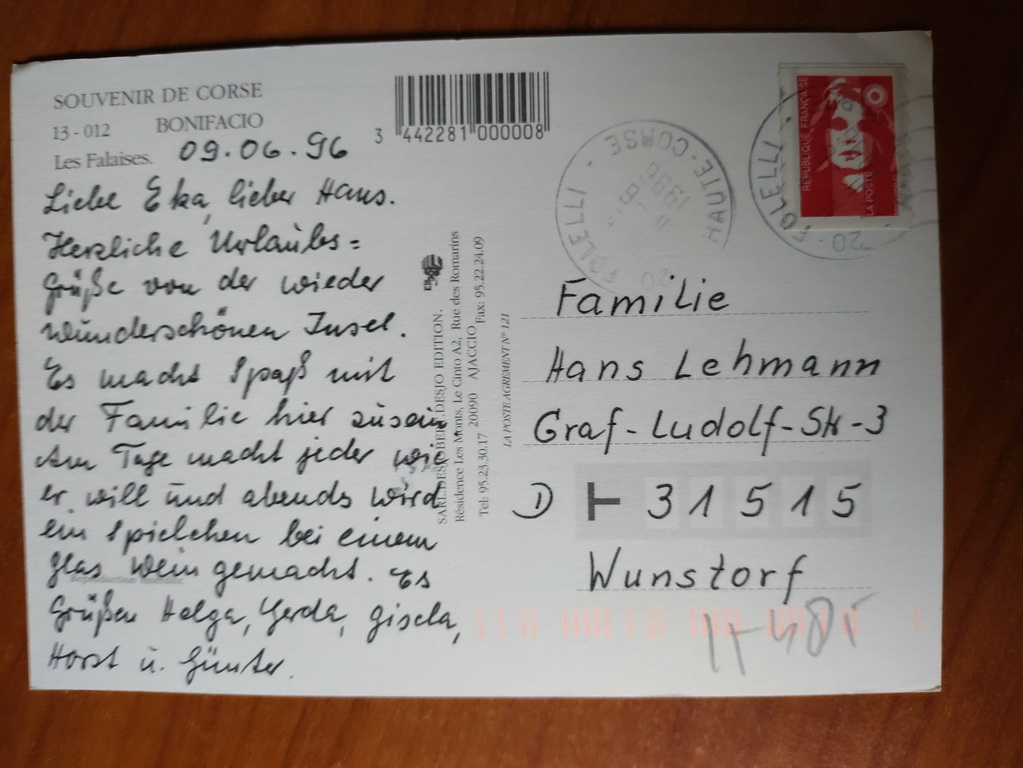 SOUVENIR DE CORSE
13 - 012 BONIFACIO
Les Falaises. 09.06.96
3 442281 000008
Liebe Eka, lieber Hans.
Herzliche Urlaubs=
grüße von der wieder
wunderschönen Insel.
Es macht Spaß mit
der Familie hier zusein
Am Tage macht jeder wie
er will und abends wird
ein Spielchen bei einem
Glas Wein gemacht. Es
Grüßen Helga, Gerda, Gisela,
Horst u. Günter.
EDITION.
Résidence Les Monts, Le Cinto A2, Rue des Romarins
20090 AJACCIO
Tel: 95.23.30.17 Fax: 95.22.24.09
LA POSTE AGREMENT N° 121
20 FOLELLI HAUTE-CORSE
1996
REPUBLIQUE FRANÇAISE
LA POSTE
20 FOLELLI
Familie
Hans Lehmann
Graf-Ludolf-Str-3
D 31515
Wunstorf